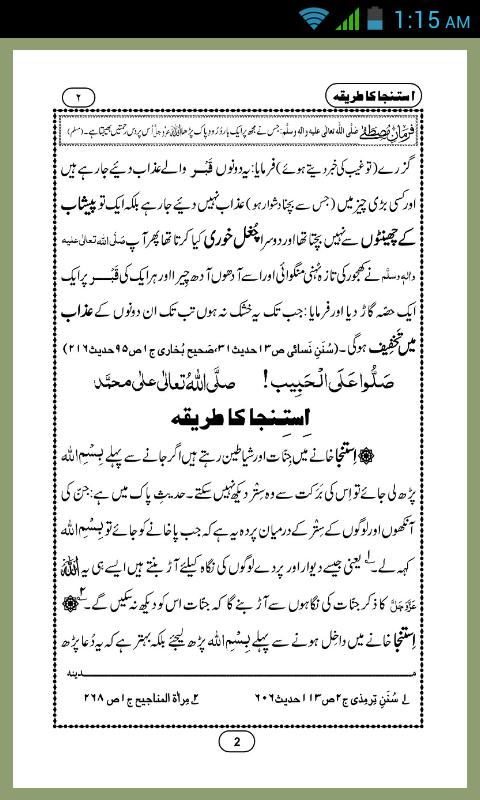 1:15 AM
استنجا کا طریقہ
۲
فرمانِ مصطفےٰ صلَّی اللہ تعالٰی علیہ واٰلہ وسلَّم: جس نے مجھ پر ایک بار دُرُودِ پاک پڑھا اللہ عَزَّوَجَلَّ اُس پر دس رحمتیں بھیجتا ہے۔ (مسلم)
گزرے (تو غیب کی خبر دیتے ہوئے) فرمایا: یہ دونوں قَبْر والے عذاب دیئے جارہے ہیں
اور کسی بڑی چیز میں (جس سے بچنا دشوار ہو) عذاب نہیں دیئے جارہے بلکہ ایک تو پیشاب
کے چھینٹوں سے نہیں بچتا تھا اور دوسرا چُغل خوری کیا کرتا تھا پھر آپ صلَّی اللہ تعالٰی علیہ
واٰلہٖ وسلَّم نے کھجور کی تازہ ٹہنی منگوائی اور اسے آدھوں آدھ چیرا اور ہر ایک کی قَبْر پر ایک
ایک حصّہ گاڑ دیا اور فرمایا: جب تک یہ خشک نہ ہوں تب تک ان دونوں کے عذاب
میں تَخْفِیف ہوگی۔ (سُنَنِ نَسائی ص۱۳حدیث۳۱،صَحِیح بُخاری ج۱ص۹۵حدیث۲۱۶)
صَلُّوا عَلَی الْحَبِیب! صلَّی اللہُ تعالٰی علٰی محمَّد
اِستِنجا کا طریقہ
اِستِنجا خانے میں جِنّات اور شیاطین رہتے ہیں اگر جانے سے پہلے بِسْمِ اللہ
پڑھ لی جائے تو اِس کی بَرَکت سے وہ سِتْر دیکھ نہیں سکتے۔ حدیثِ پاک میں ہے: جن کی
آنکھوں اور لوگوں کے سِتْر کے درمیان پردہ یہ ہے کہ جب پاخانے کو جائے تو بِسْمِ اللہ
کہہ لے۔ ۱ یعنی جیسے دیوار اور پردے لوگوں کی نگاہ کیلئے آڑ بنتے ہیں ایسے ہی یہ اللہ
عَزَّوَجَلَّ کا ذکر جنّات کی نگاہوں سے آڑ بنے گا کہ جنّات اس کو دیکھ نہ سکیں گے۔ ۲
اِستِنجا خانے میں داخِل ہونے سے پہلے بِسْمِ اللہ پڑھ لیجئے بلکہ بہتر ہے کہ یہ دُعا پڑھ
مدینہ
۱ سُنَنِ تِرمِذی ج۲ص۱۱۳حدیث۶۰۶ ۲ مِراٰۃ المناجیح ج۱ص۲۶۸
2